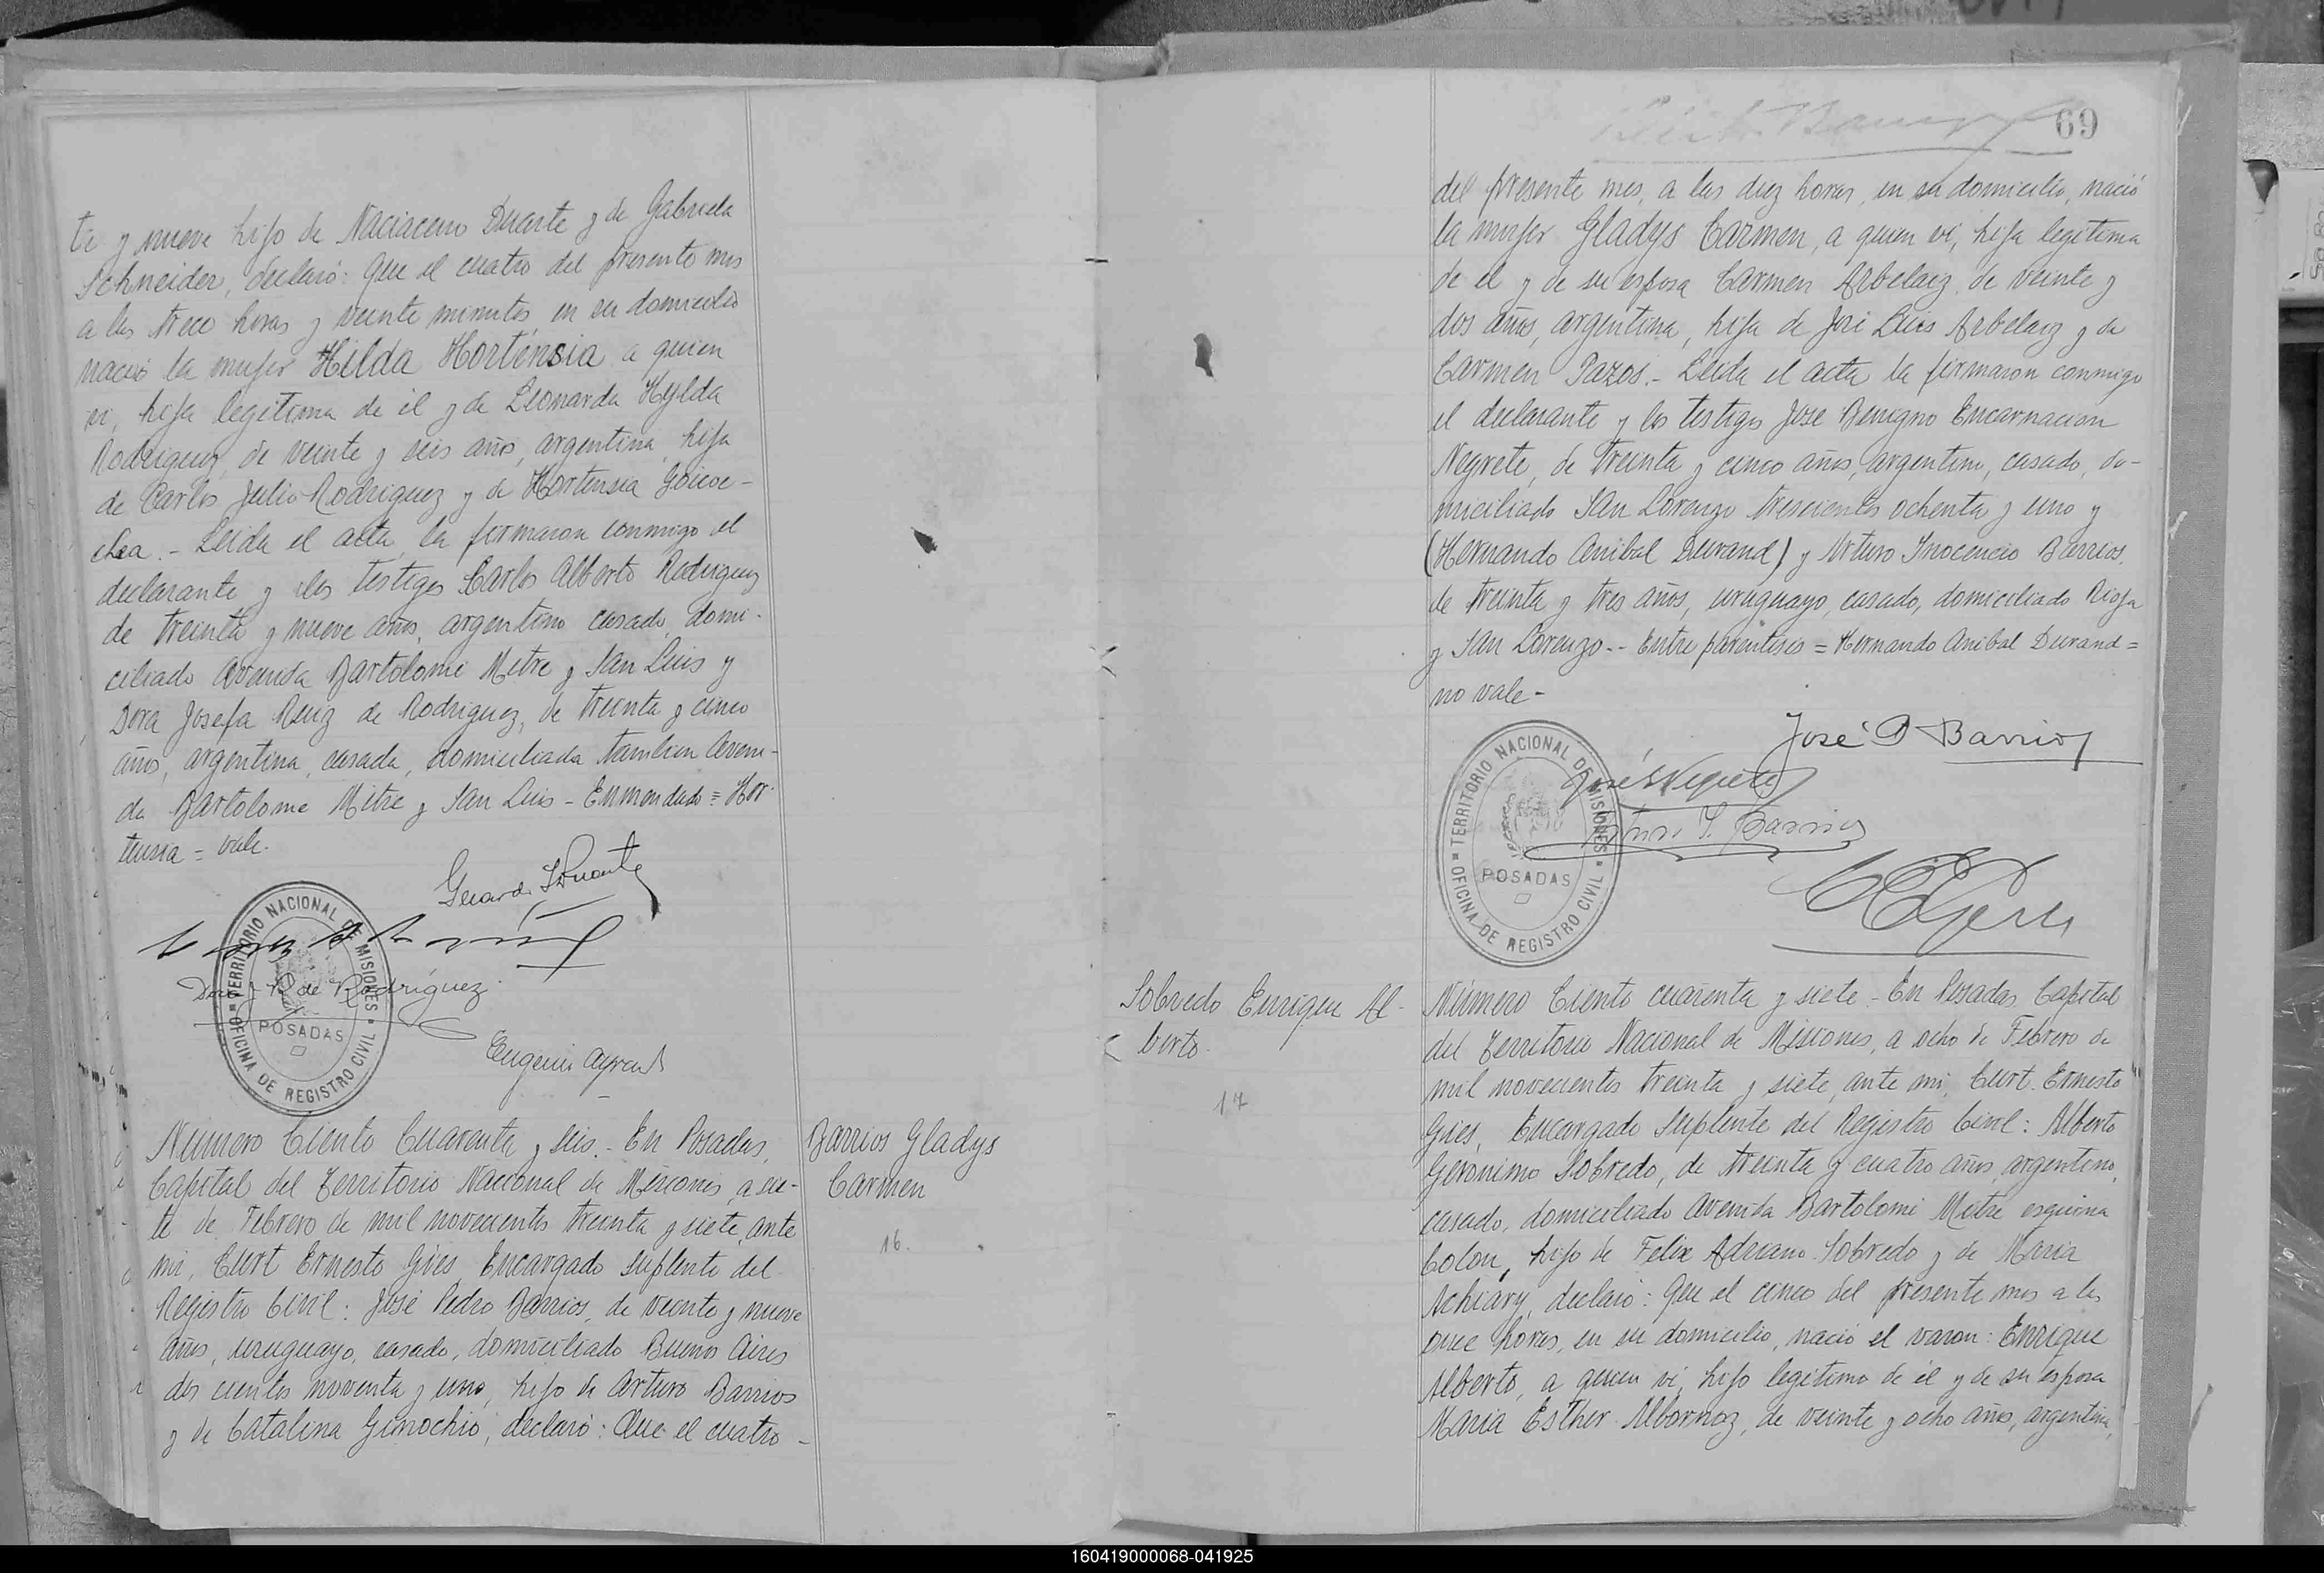 te y nueve hijo de Naciaceno Duarte y de Gabriela
Schneider, declaró: Que el cuatro del presente mes
a las trece horas y veinte minutos en su domicilio
nació la mujer Hilda Hortensia a quien
vi, hija legitima de él y de Leonarda Hylda
Rodriguez, de veinte y seis años, argentina, hija
de Carlos Julio Rodriguez y de Hortensia Goicoe-
chea.- Leida el acta, la firmaron conmigo el
declarante y los testigos Carlos Alberto Rodriguez
de treinta y nueve años, argentino casado, domi-
ciliado Avenida Bartolomé Mitre y San Luis y
Dora Josefa Ruiz de Rodriguez, de treinta y cinco
años, argentina, casada, domiciliada tambien Aveni-
da Bartolome Mitre y San Luis - Enmendado = Hor-
tensia = vale.
Dora J R de Rodríguez
TERRITORIO NACIONAL DE MISIONES
POSADAS
OFICINA DE REGISTRO CIVIL
Número Ciento Cuarenta y seis.- En Posadas,
Capital del Territorio Nacional de Misiones, a sie-
te de Febrero de mil novecientos treinta y siete, ante
mi, Curt Ernesto Gües, Encargado Suplente del
Registro Civil: José Pedro Barrios, de veinte y nueve
años, uruguayo, casado, domiciliado Buenos Aires
dos cientos noventa y uno, hijo de Arturo Barrios
y de Catalina Ginochio, declaró: Que el cuatro -
Barrios Gladys
Carmen
16.
69
del presente mes, a las diez horas, en su domicilio, nació
la mujer Gladys Carmen, a quien vi, hija legitima
de el y de su esposa Carmen Arbelaiz de veinte y
dos años, argentina, hija de José Luis Arbelaiz y de
Carmen Pazos.- Leida el acta la firmaron conmigo
el declarante y los testigos Jose Benigno Encarnacion
Negrete, de treinta y cinco años, argentino, casado, do-
miciliado San Lorenzo trescientos ochenta y uno y
(Hernando Anibal Durand) y Arturo Inocencio Barrios,
de treinta y tres años, uruguayo, casado, domiciliado Rioja
y San Lorenzo.- Entre parentesis = Hernando Anibal Durand =
no vale -
José P Barrios
José Negrete
Arturo I. Barrios
TERRITORIO NACIONAL DE MISIONES
POSADAS
OFICINA DE REGISTRO CIVIL
Sobredo Enrique Al-
berto.
17
Número Ciento cuarenta y siete - En Posadas Capital
del Territorio Nacional de Misiones, a ocho de Febrero de
mil novecientos treinta y siete, ante mi, Curt Ernesto
Gües, Encargado Suplente del Registro Civil: Alberto
Gerónimo Sobredo, de treinta y cuatro años, argentino,
casado, domiciliado Avenida Bartolomé Mitre esquina
Colon, hijo de Felix Adriano Sobredo y de Maria
Schiavy, declaró: Que el cinco del presente mes a las
once horas, en su domicilio, nació el varon: Enrique
Alberto, a quien vi, hijo legitimo de él y de su esposa
Maria Esther Albornoz, de veinte y ocho años, argentina,
160419000068-041925